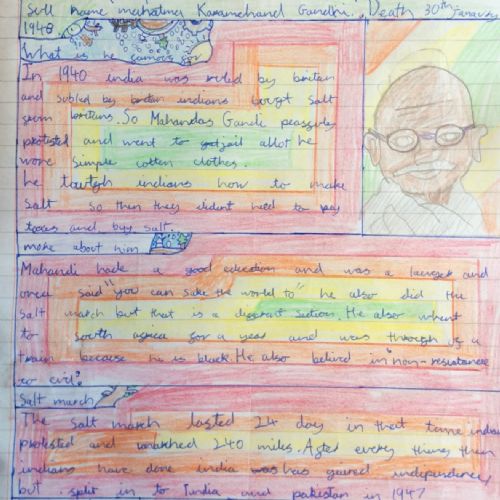 full name mahatma Karamchand Gandhi. Death 30th January
1948
What is he famous for
In 1940 india was ruled by britan
and subled by britan indians bougt salt
from britians. So Mahandas Gandi peassfuly
protested and went to jail allot he
wore simple cotten clothes.
he tougth indians how to make
salt so then they dident need to pay
taxes and buy salt.
more about him
Mahandi hade a good education and was a lawyer and
once said "you can sake the world to" he also did the
salt march but that is a diffrent section. He also whent
to south africa for a year and was through of a
train because he is black. He also belived in "non-resistance
to evil"
Salt march
The salt march lasted 24 day in that time indian
protested and marched 240 miles. After every thing then
indians have done india has gained independency
but split in to India and pakistan in 1947